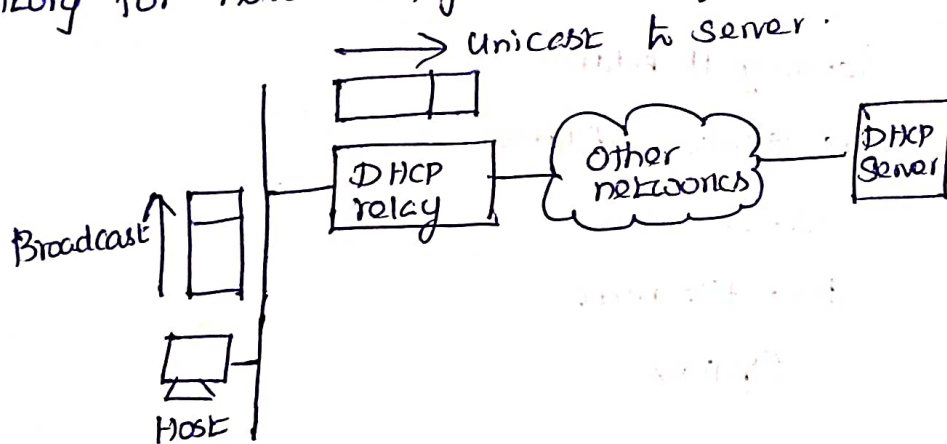 for
unicast to server.
DHCP
relay
Other
networks
DHCP
Server
Broadcast
Host